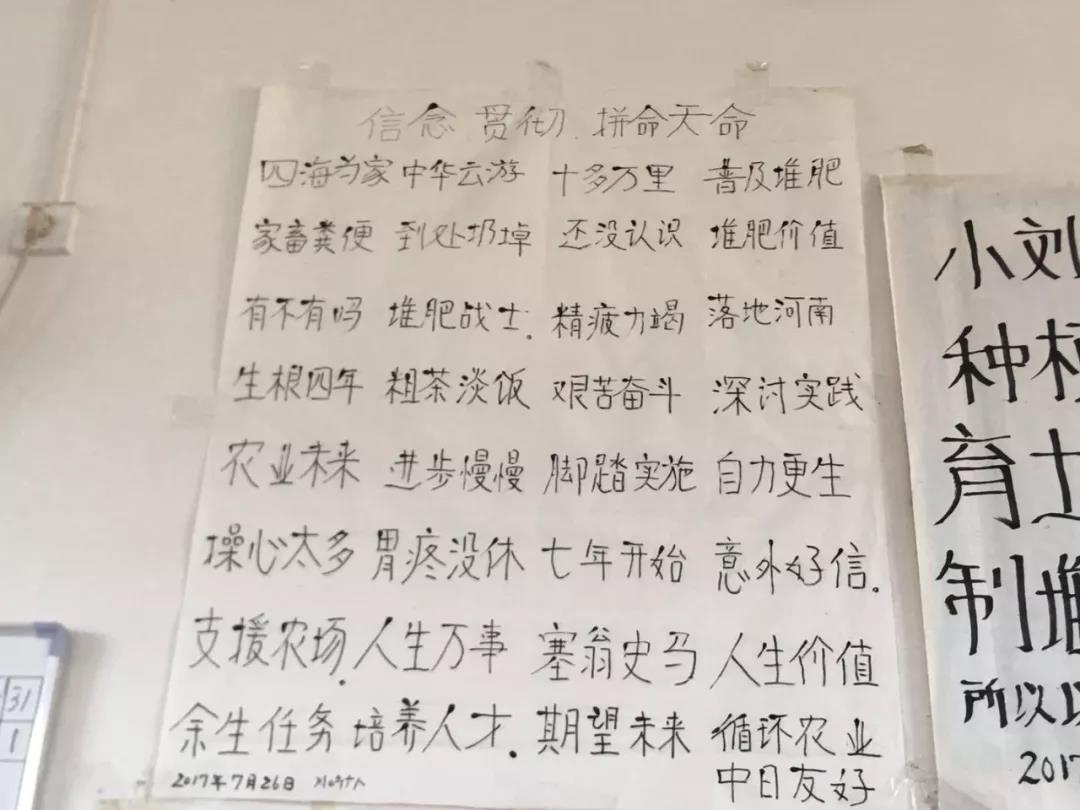 信念.贯彻.拼命天命
四海为家 中华云游 十多万里 普及堆肥
家畜粪便 到处扔掉 还没认识 堆肥价值
有不有吗 堆肥战士. 精疲力竭 落地河南
生根四年 粗茶淡饭 艰苦奋斗 深讨实践
农业未来 进步慢慢 脚踏实施 自力更生
操心太多 胃疼没休 七年开始 意外好信.
支援农场. 人生万事 塞翁史马 人生价值
余生任务 培养人才. 期望未来 循环农业
中日友好
2017年7月26日
小刘
种
育土
制堆
所以以
2017
31
1